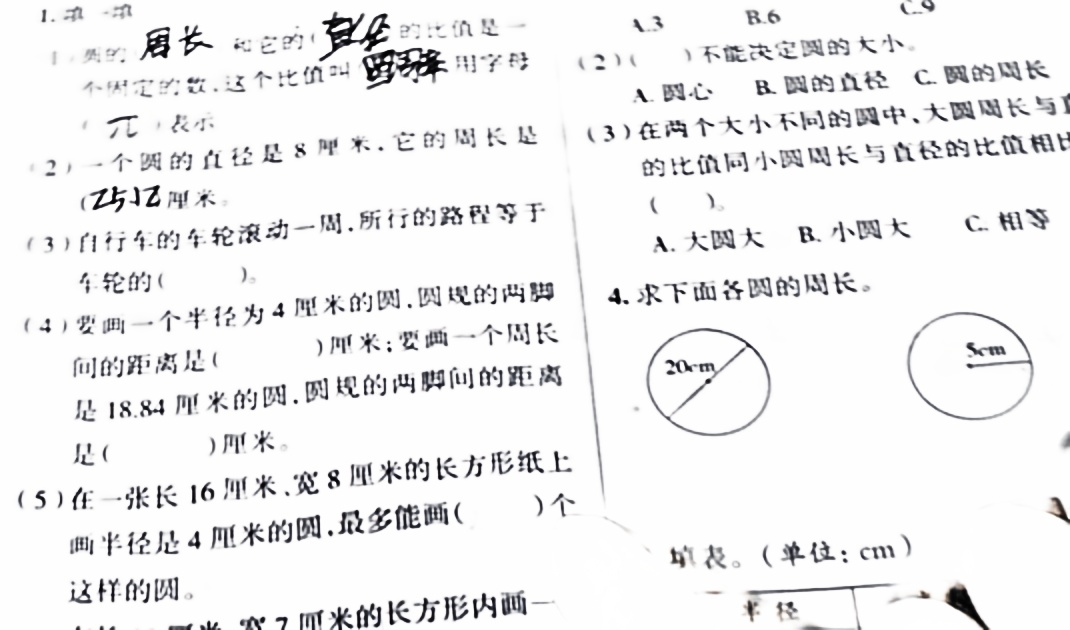 1. 填一填
(1)圆的(周长)和它的(直径)的比值是一
个固定的数,这个比值叫(圆周率)用字母
(兀)表示
(2)一个圆的直径是8厘米,它的周长是
(2512厘米。
(3)自行车的车轮滚动一周,所行的路程等于
车轮的( )。
(4)要画一个半径为4厘米的圆,圆规的两脚
间的距离是( )厘米;要画一个周长
是18.84厘米的圆,圆规的两脚间的距离
是( )厘米。
(5)在一张长16厘米、宽8厘米的长方形纸上
画半径是4厘米的圆,最多能画( )个
这样的圆。
厘米、宽7厘米的长方形内画一
A.3 B.6 C.9
(2)( )不能决定圆的大小。
A. 圆心 B. 圆的直径 C. 圆的周长
(3)在两个大小不同的圆中,大圆周长与直
的比值同小圆周长与直径的比值相比
( )。
A. 大圆大 B. 小圆大 C. 相等
4. 求下面各圆的周长。
20cm
5cm
填表。(单位:cm)
半径